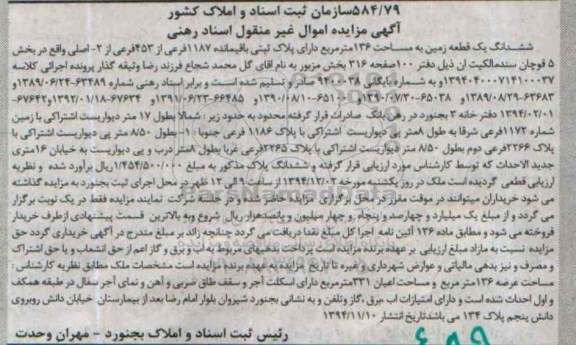 ۵۸۴/۷۹سازمان ثبت اسناد و املاک کشور
آگهی مزایده اموال غیر منقول اسناد رهنی
ششدانگ یک قطعه زمین به مساحت ۱۳۶مترمربع دارای پلاک ثبتی باقیمانده ۱۱۸۷فرعی از ۴۵۳فرعی از ۲- اصلی واقع در بخش
۵ قوچان سندمالکیت آن ذیل دفتر ۱۰۰صفحه ۳۱۶ بخش مزبور به نام اقای گل محمد شجاع فرزند رضا وثیقه گذار پرونده اجرائی کلاسه
۱۳۹۴۰۴۰۰۰۷۱۴۱۰۰۰۳۷و به شماره بایگانی ۹۴۰۰۰۳۸ صادر و تسلیم شده است و برابر اسناد رهنی شماره ۶۳۴۸۹-۱۳۸۹/۰۶/۲۴و
۶۳۶۸۳-۱۳۸۹/۰۸/۲۹و ۶۵۰۳۸-۱۳۹۰/۰۷/۳۰و ۶۵۱۰۰-۱۳۹۰/۰۸/۱۰و ۶۶۴۸۵-۱۳۹۱/۰۶/۲۳و ۶۷۶۳۴-۱۳۹۲/۰۱/۱۸و ۶۷۶۴۲-
۱۳۹۴/۰۲/۰۱ دفتر خانه ۳ بجنورد در رهن بانک صادرات قرار گرفته محدود به حدود زیر : شمالا بطول ۱۷ متر دیواریست اشتراکی با زمین
شماره ۱۱۷۲فرعی شرقا به طول ۸متر پی دیواریست اشتراکی با پلاک ۱۱۸۶ فرعی جنوبا : ۱- بطول ۸/۵۰ متر پی دیواریست اشتراکی با
پلاک ۲۲۶۶فرعی دوم بطول ۸/۵۰ متر دیواریست اشتراکی با پلاک ۲۲۶۵فرعی غربا بطول ۸متر درب و پی دیواریست به خیابان ۱۶متری
جدید الاحداث که توسط کارشناس مورد ارزیابی قرار گرفته و ششدانگ پلاک مذکور به مبلغ ۱/۴۵۴/۵۰۰/۰۰۰ریال برآورد شده و نظریه
ارزیابی قطعی گردیده است ملک در روز یکشنبه مورخه ۱۳۹۴/۱۲/۰۲ از ساعت ۹ الی ۱۲ ظهر در محل اجرای ثبت بجنورد به مزایده گذاشته
می شود خریداران میتوانند در موقت مقرر در محل برگزاری مزایده حاضر شده و در جلسه شرکت نمایند مزایده فقط در یک نوبت برگزار
می گردد و از مبلغ یک میلیارد و چهارصد و پنجاه و چهار میلیون و پانصدهزار ریال شروع وبه بالاترین قسمت پیشنهادی ازطرف خریدار
فروخته می شود و مطابق ماده ۱۳۶ آئین نامه اجرا کل مبلغ نقدا دریافت می گردد چنانچه زائد بر مبلغ مندرج در آگهی خریداری گردد حق
مزایده نسبت به مازاد مبلغ ارزیابی بر عهده برنده مزایده است پرداخت بدهیهای مربوط به آب و برق و گاز اعم از حق انشعاب و یا حق اشتراک
و مصرف و نیز بدهی مالیاتی و عوارض شهرداری و غیره تا تاریخ مزایده بر عهده برنده مزایده است مشخصات ملک مطابق نظریه کارشناس :
مساحت عرصه ۱۳۶متر مربع و مساحت اعیان ۳۳۱مترمربع دارای اسکلت آجر و سقف طاق ضربی و آهن و نمای آجر سفال در طبقه همکف
و اول احداث شده است و دارای امتیازات اب برق ،گاز وتلفن و به نشانی بجنورد شیروان بلوار امام رضا بعد از بیمارستان خیابان دانش روبروی
دانش پنجم پلاک ۱۳۴ می باشدتاریخ انتشار ۱۳۹۴/۱۱/۱۰
رئیس ثبت اسناد و املاک بجنورد - مهران وحدت